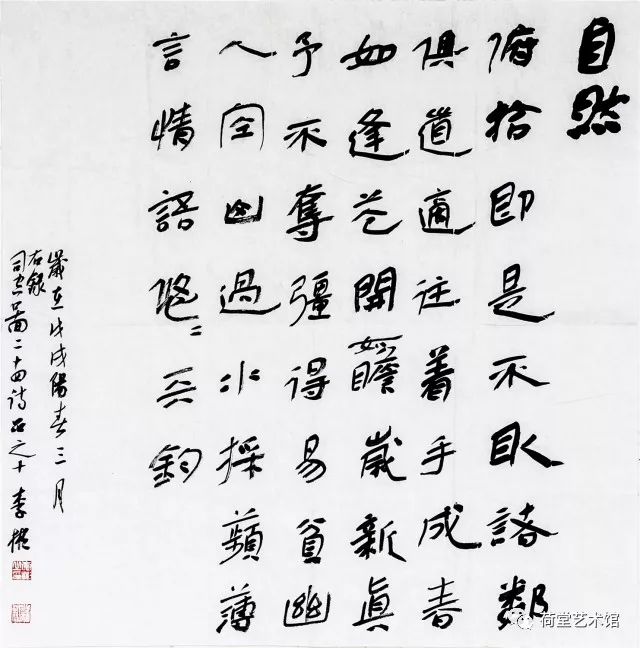 自然
俯拾即是不取諸鄰
俱道適往着手成春
如逢花開如瞻歲新眞
予不奪彊得易貧幽
人空山過水採蘋薄
言情語悠〻天鈞
歲在戊戌陽春三月
右錄
司空圖二十四詩品之十 李
荷堂艺术馆